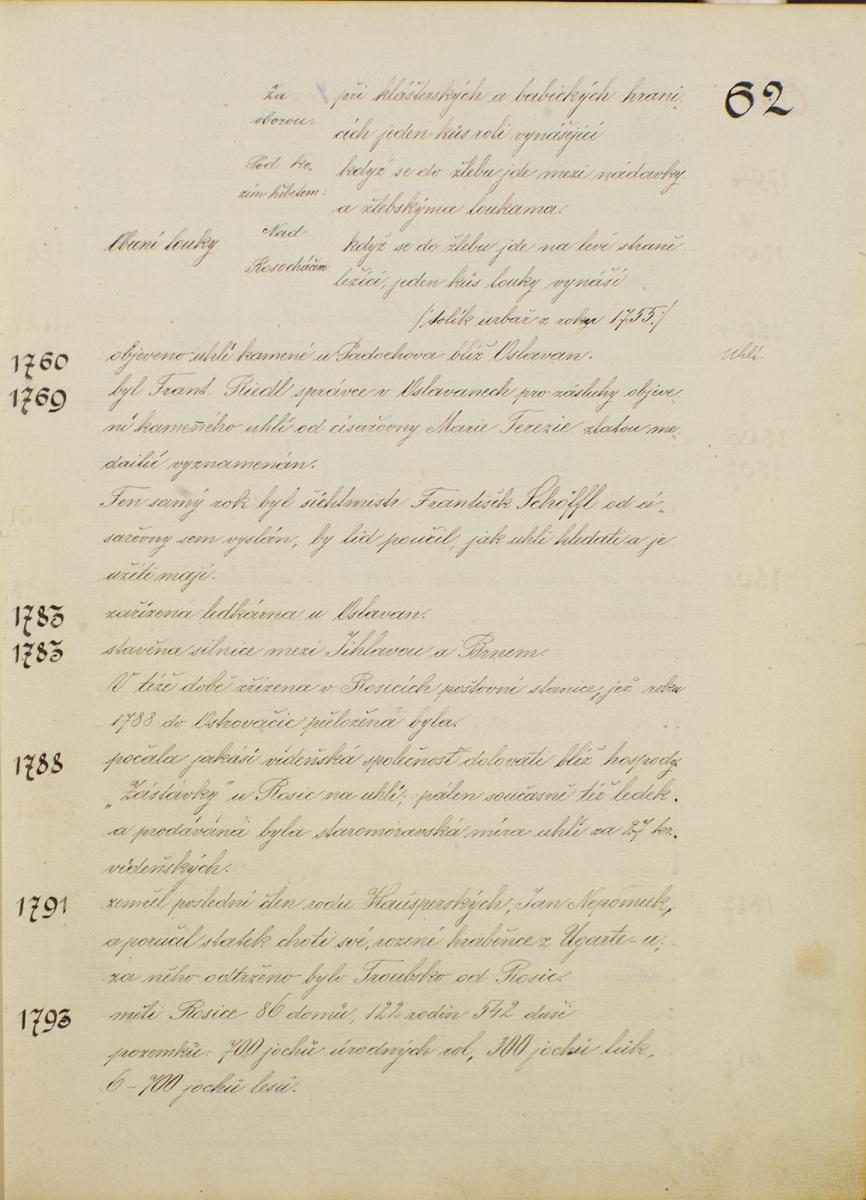 62
Za oborou: při klášterských a babických hrani-
cích jeden kus roli vynášející
Pod ko-
zím hřbetem: když se do žlebu jde mezi nádavky
a žlebskýma loukama.
Obecní louky Nad Rosocháčem když se do žlebu jde na levé straně
ležící, jeden kus louky vynáší
/:tolik urbař z roku 1755:/
1760 objeveno uhlí kamené u Padochova blíž Oslavan. Uhlí.
1769 byl Frant. Riedl správce v Oslavanech pro zásluhy objeve-
ní kameného uhlí od císařovny Marie Terezie zlatou me-
dailií vyznamenán.
Ten samý rok byl šichtmistr František Schöffl od cí-
sařovny sem vyslán, by lid poučil, jak uhlí hledati a je
užiti mají.
1783 zařízena ledkárna u Oslavan.
1783 stavěna silnice mezi Jihlavou a Brnem.
V téže době zřízena v Rosicích poštovní stanice, jež roku
1788 do Ostrovačic přeložena byla.
1788 počala jakási vídeňská společnost dolovati blíž hospody
„Zástavky" u Rosic na uhlí; pálen současně též ledek.
a prodávána byla staromoravská míra uhlí za 27 kr.
vídeňských.
1791 zemřel poslední člen rodu Hausperských, Jan Nepomuk,
a poručil statek choti své, rozené hraběnce z Ugarte-u;
za něho odtrženo bylo Troubsko od Rosic.
1793 měli Rosice 86 domů, 122 rodin 542 duší
pozemků: 700 jochů úrodných rol, 300 jochů luk,
6–700 jochů lesů.